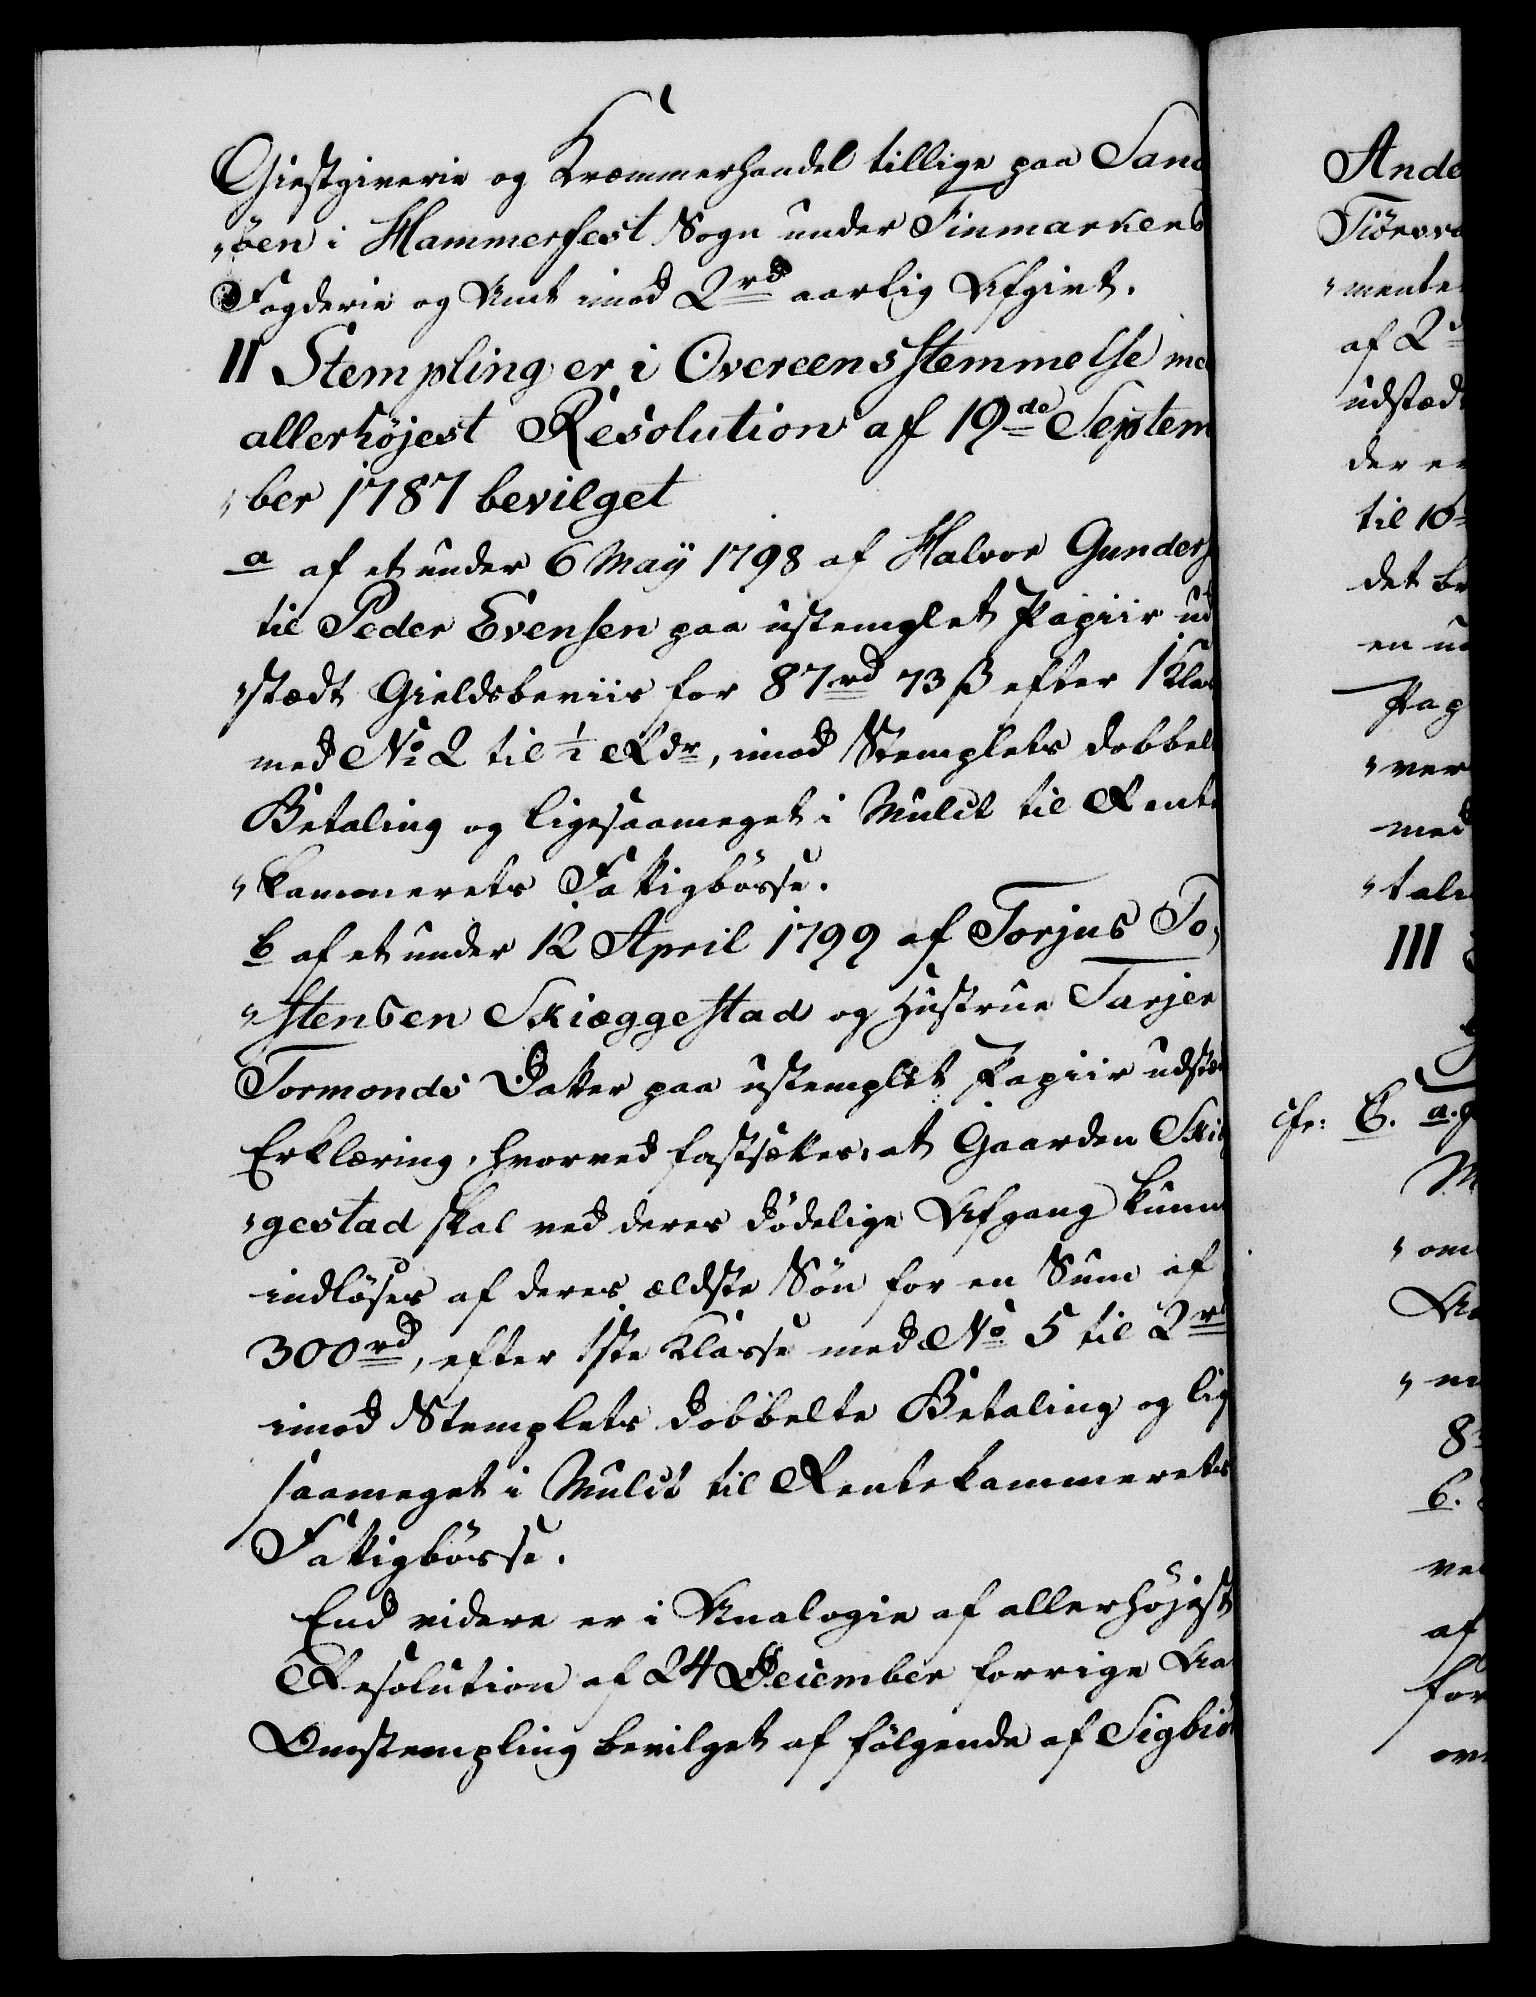 Giestgiverie og Kræmmerhandel tillige paa Sand
„öen i Hammerfest Sogn under Finmarkens
Fogderie og Amt imod 2rd aarlig Afgivt.
II Stempling er i Overeensstemmelse med
allerhöjest Resolution af 19de Septem
„ber 1787 bevilget
a af et under 6 Maÿ 1798 af Halvor Gunders
til Peder Evensen paa ustemplet Papiir ud
„stædt Gieldsbeviis for 87rd 73 ß efter 1 Klas
med No 2 til ½ Rdr, imod Stemplets dobbelt
Betaling og ligesaameget i Mulct til Rente
„kammerets Fattigbösse.
b af et under 12 April 1799 af Torjus To,
„stensen Skiæggestad og Hustrue Tarjer
Tormonds Datter paa ustemplet Papiir udstæ
Erklæring, hvorved fastsættes, at Gaarden Skiæ
„gestad skal ved deres dödelige Afgang kunne
indlöses af deres ældste Sön for en Sum af
300rd, efter 1ste Klasse med No 5 til 2rd
imod Stemplets dobbelte Betaling og lig
saameget i Mulct til Rentekammerets
Fattigbösse.
End videre er i Analogie af allerhöjest
Resolution af 24 December forrige Aa
Omstempling bevilget af fölgende af Sigbiör
Ande
„mente
af 2
udstædt
der er
til 10
det be
en
Pap
„ver
med
„tali
III
cfr: C. a.
„om
8
b.
ved
af
for